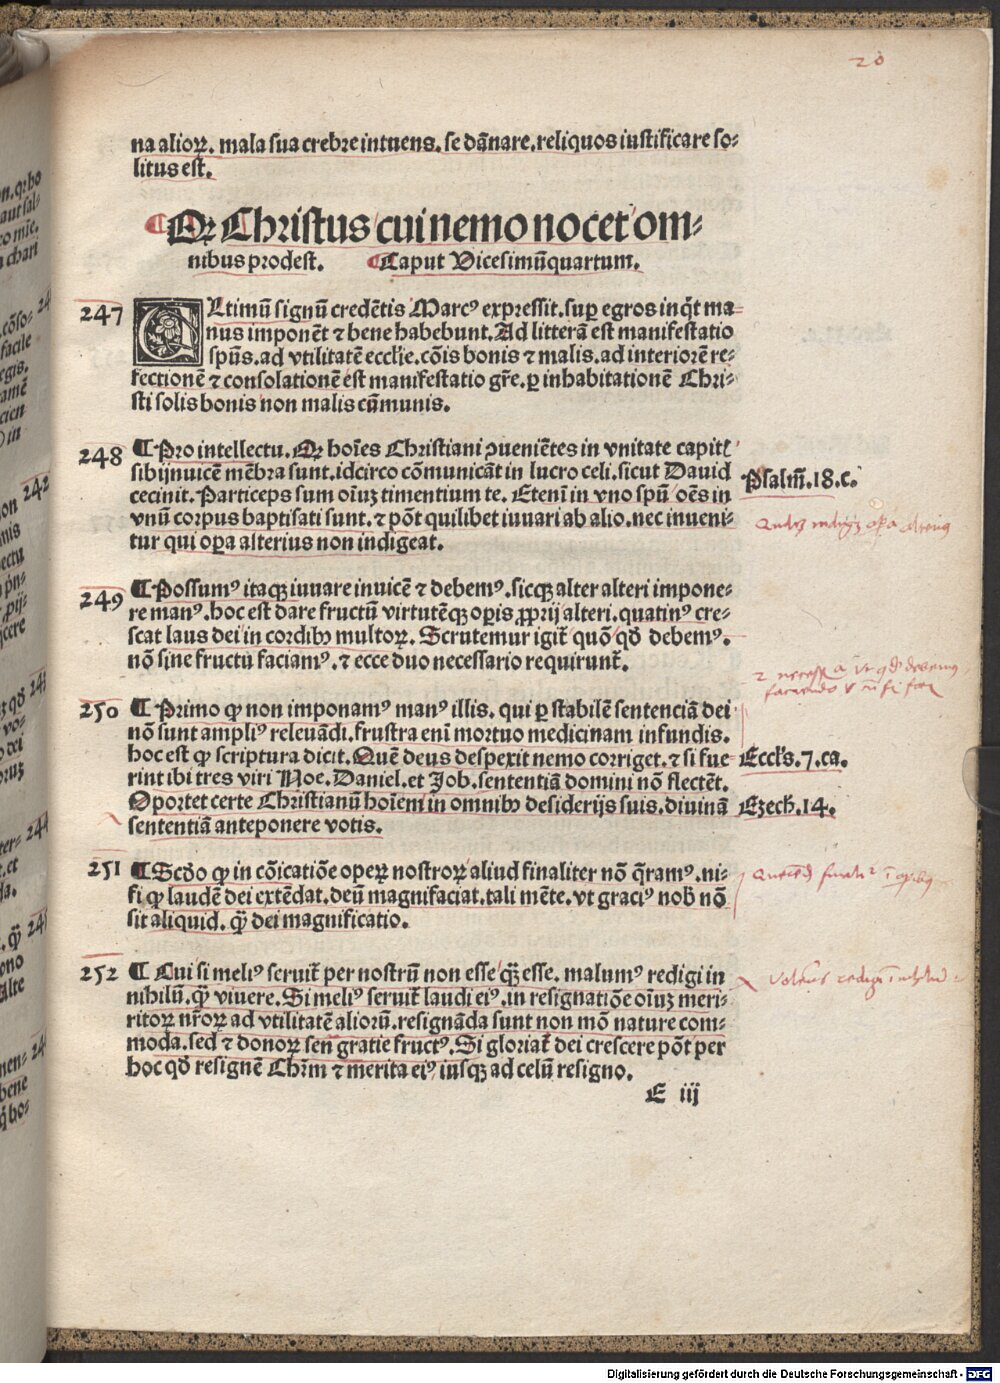 20
na alioꝝ. mala sua crebre intuens. se dānare. reliquos iustificare so⸗
litus est.
¶ Qꝛ Christus cui nemo nocet om⸗
nibus prodest. ¶ Caput Vicesimūquartum.
247 VLtimū signū credētis Marcꝰ expressit. suꝑ egros inqt̄ ma⸗
nus imponēt ⁊ bene habebunt. Ad litterā est manifestatio
spūs. ad vtilitatē ecclīe. cōis bonis ⁊ malis. ad interiorē re⸗
fectionē ⁊ consolationē est manifestatio grē. ꝑ inhabitationē Chri⸗
sti solis bonis non malis cūmunis.
248 ¶ Pro intellectu. Qꝛ hoīes Christiani ꝓueniētes in vnitate capitꝭ
sibijnuicē mēbra sunt. idcirco cōmunicāt in lucro celi. sicut Dauid
cecinit. Particeps sum oīuꝫ timentium te. Etenī in vno spū oēs in
Psalm̄. 18. c.
vnū corpus baptisati sunt. ⁊ pōt quilibet iuuari ab alio. nec inueni⸗
tur qui oꝑa alterius non indigeat.
249 ¶ Possumꝰ itaqꝫ iuuare inuicē ⁊ debemꝰ. sicqꝫ alter alteri impone⸗
re manꝰ. hoc est dare fructū virtutēqꝫ oꝑis ꝓprij alteri. quatinꝰ cre⸗
scat laus dei in cordibꝰ multoꝝ. Scrutemur igit̄ quō qd̄ debemꝰ.
nō sine fructu faciamꝰ. ⁊ ecce duo necessario requirunt̄.
250 ¶ Primo ꝙ non imponamꝰ manꝰ illis. qui ꝑ stabilē sentenciā dei
nō sunt ampliꝰ releuādi. frustra enī mortuo medicinam infundis.
hoc est ꝙ scriptura dicit. Quē deus despexit nemo corriget. ⁊ si fue
Eccl̄s. 7. ca.
rint ibi tres viri Noe. Daniel. et Job. sententiā domini nō flectēt.
Oportet certe Christianū hoīem in omnibꝰ desiderijs suis. diuinā
Ezech̄. 14.
sententiā anteponere votis.
251 ¶ Scd̄o ꝙ in cōicatiōe operꝝ nostroꝝ aliud finaliter nō q̄ramꝰ. ni⸗
si ꝙ laudē dei extēdat. deū magnifaciat. tali mēte. vt graciꝰ nob̄ nō
sit aliquid. qꝫ̄ dei magnificatio.
252 ¶ Cui si meliꝰ seruit̄ per nostrū non esse qꝫ̄ esse. malumꝰ redigi in
nihilū. qꝫ̄ viuere. Si meliꝰ seruit̄ laudi eiꝰ. in resignatiōe oīuꝫ meri⸗
ritoꝝ nr̄oꝝ ad vtilitatē aliorū. resignāda sunt non mō nature com⸗
moda. sed ⁊ donoꝝ seu gratie fructꝰ. Si gloriat̄ dei crescere pōt per
hoc qd̄ resignē Chr̄m ⁊ merita eiꝰ iusqꝫ ad celū resigno.
E iij
Digitalisierung gefördert durch die Deutsche Forschungsgemeinschaft - DFG